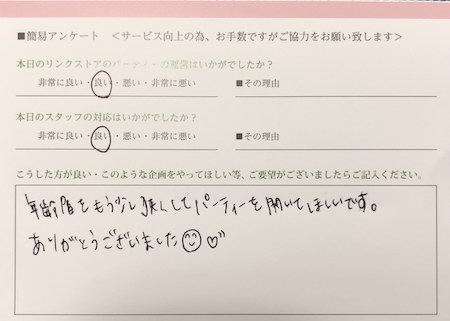 ■簡易アンケート ＜サービス向上の為、お手数ですがご協力をお願い致します＞
本日のリンクストアのパーティーの運営はいかがでしたか？
非常に良い・良い・悪い・非常に悪い ■その理由
本日のスタッフの対応はいかがでしたか？
非常に良い・良い・悪い・非常に悪い ■その理由
こうした方が良い・このような企画をやってほしい等、ご要望がございましたらご記入ください。
年齢層をもう少し狭くしてパーティーを開いてほしいです。
ありがとうございました☺♡